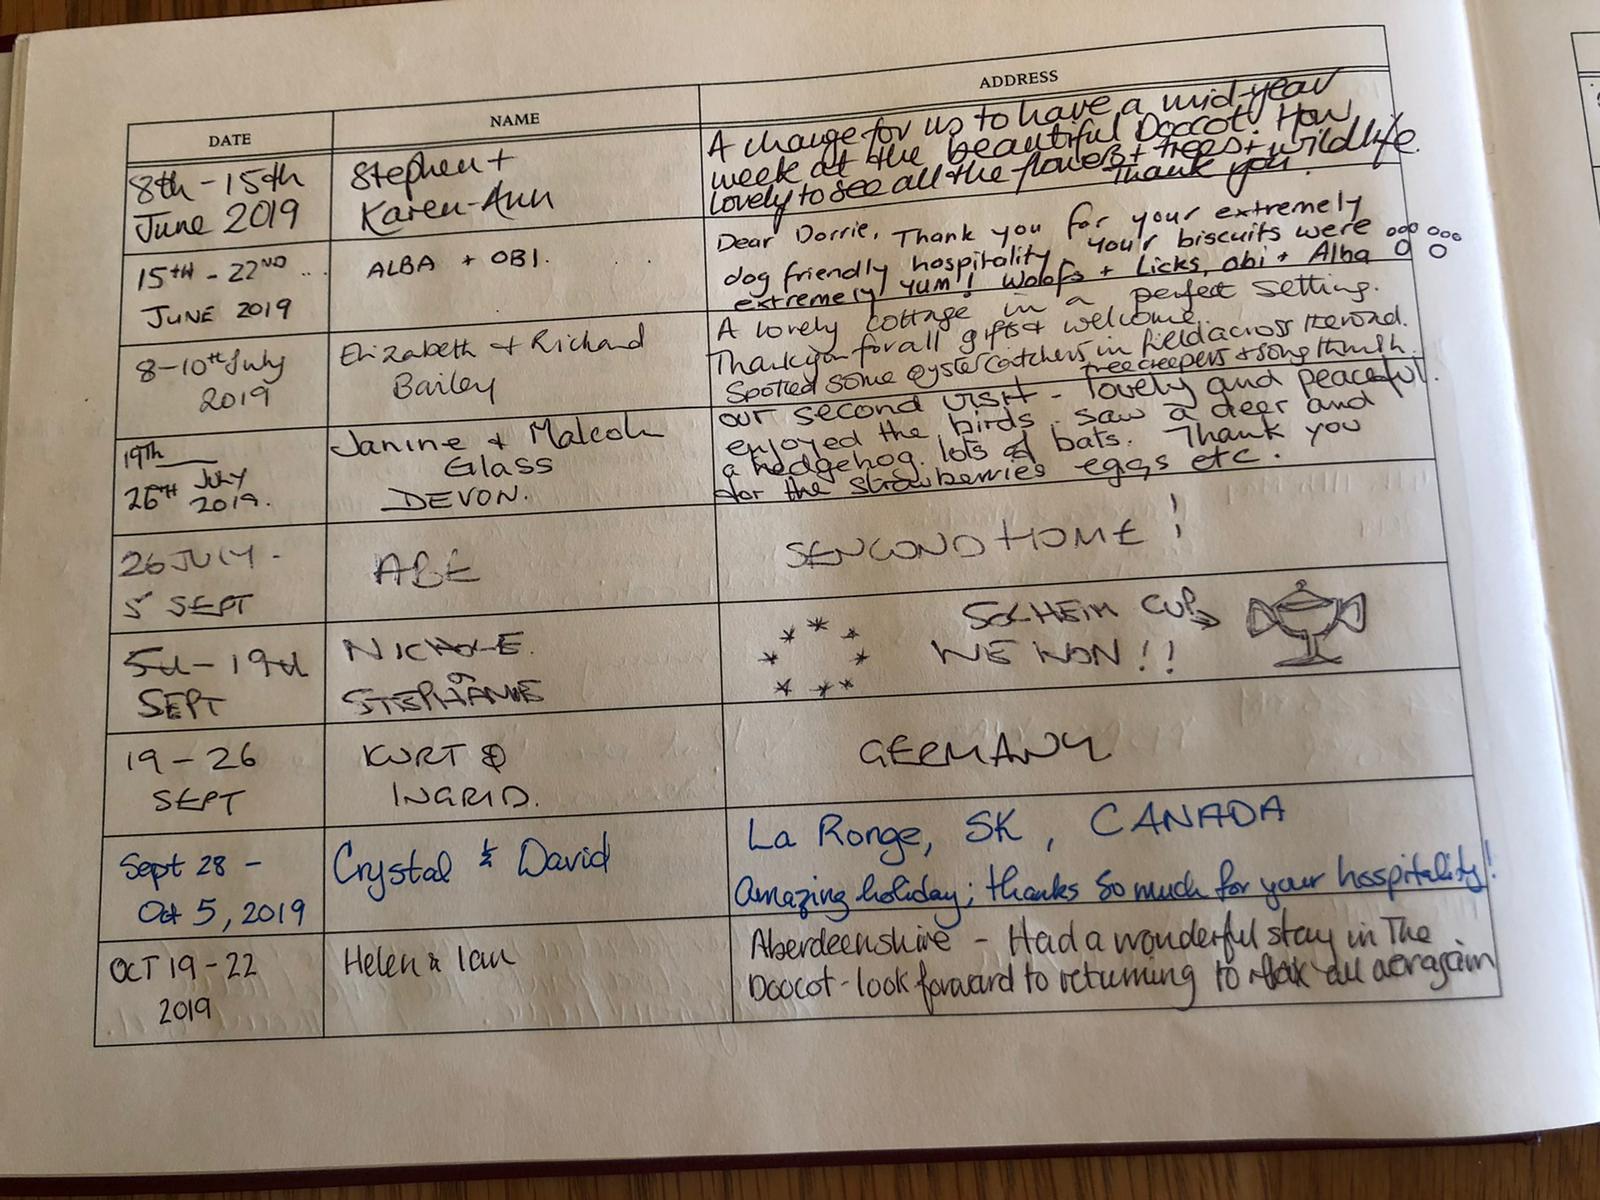 DATE NAME ADDRESS
8th - 15th
June 2019
Stephen +
Karen-Ann
A change for us to have a mid-year
week at the beautiful Doocot. How
lovely to see all the flowers + trees + wildlife.
Thank you.
15TH - 22ND ..
JUNE 2019
ALBA + OBI.
Dear Dorrie, Thank you for your extremely
dog friendly hospitality, your biscuits were
extremely yum! Woofs + Licks, Obi + Alba
8-10th July
2019
Elizabeth + Richard
Bailey
A lovely cottage in a perfect setting.
Thankyou for all gifts + welcome.
Spotted some oystercatchers in field across the road.
treecreepers + song thrush.
19th
26TH July
2019.
Janine + Malcolm
Glass
DEVON.
our second visit - lovely and peaceful.
enjoyed the birds. saw a deer and
a hedgehog. lots of bats. Thank you
for the strawberries eggs etc.
26 JULY -
5 SEPT
ABE
SENCOND HOME!
5th - 19th
SEPT
NICHOLE.
STEPHANIE
SOLHEIM CUP
WE WON!!
19 - 26
SEPT
KURT &
INGRID.
GERMANY
Sept 28 -
Oct 5, 2019
Crystal & David
La Ronge, SK, CANADA
Amazing holiday; thanks so much for your hospitality!
OCT 19-22
2019
Helen & Ian
Aberdeenshire - Had a wonderful stay in The
Doocot - look forward to returning to all over again